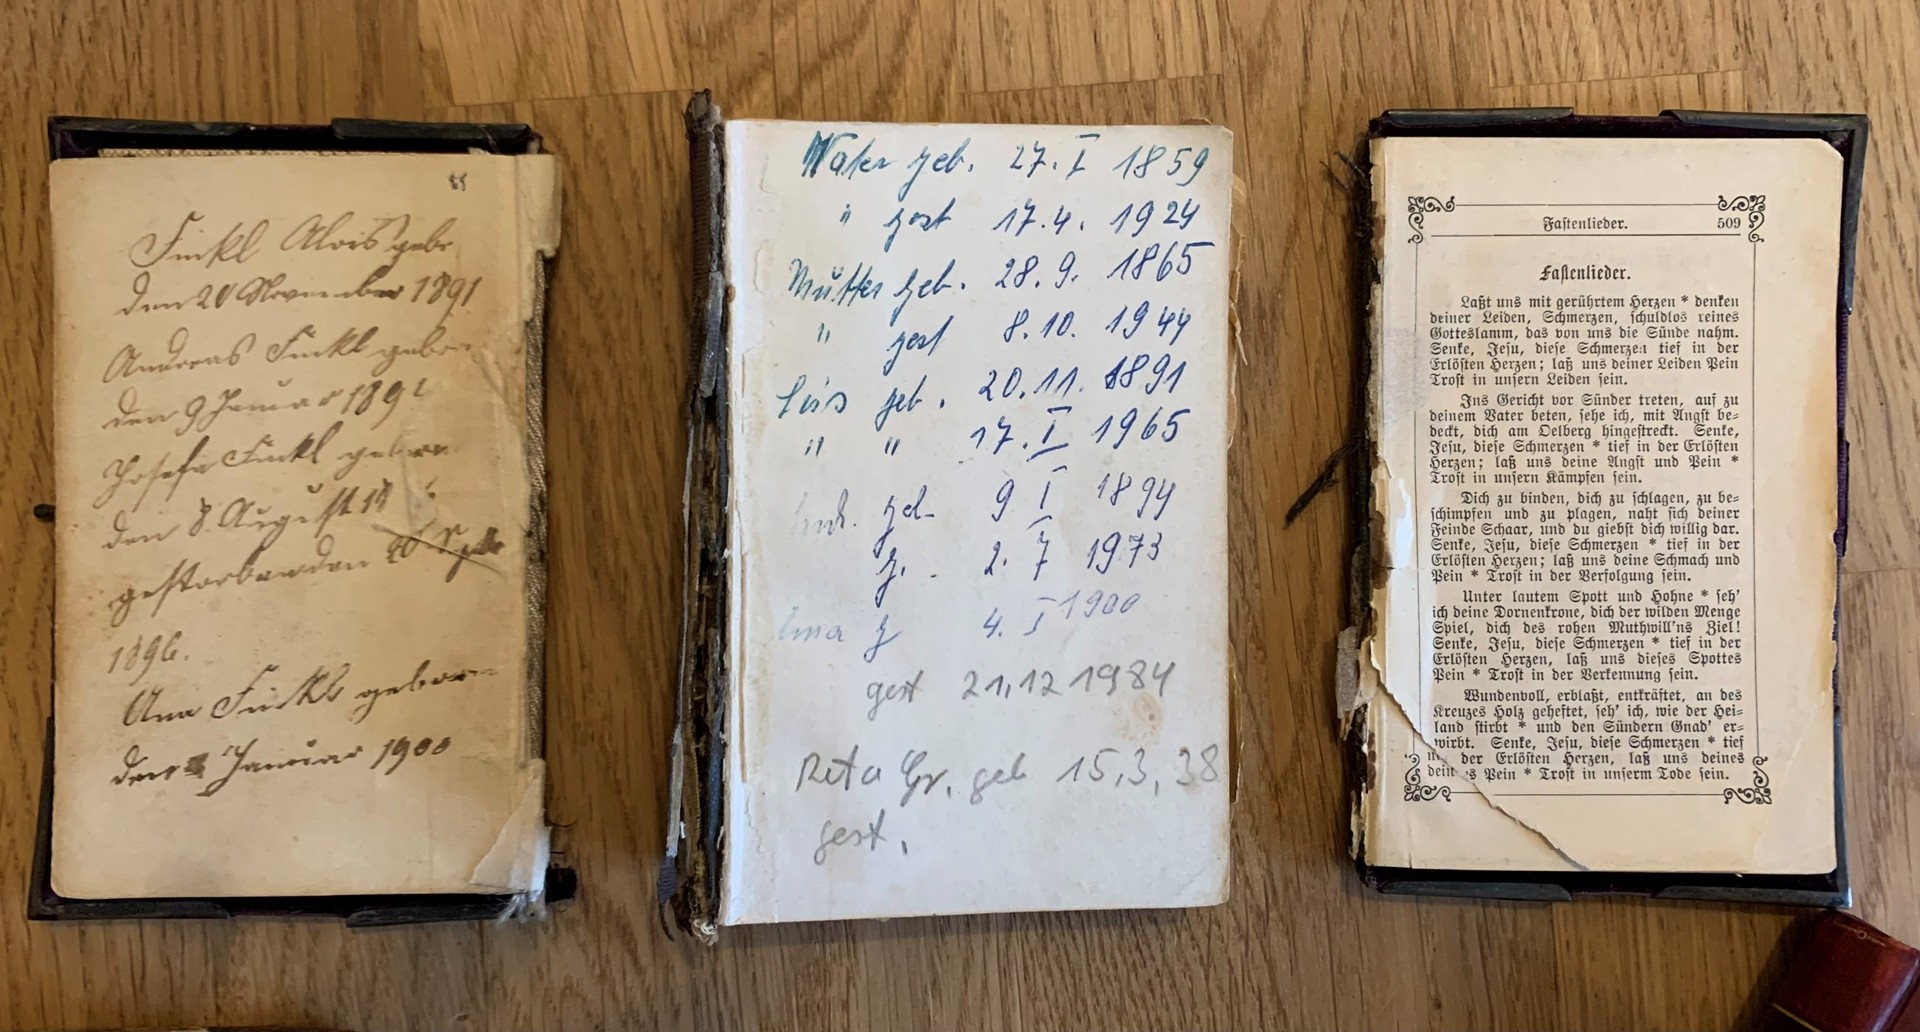 Finkl Alois gebr
den 20 November 1891
Andreas Finkl gebor
den 9 Januar 189
Josefa Finkl gebor
den 8. August 18
gestorben den
1896.
Ana Finkl geboren
den Januar 1900
Vater geb. 27. I 1859
" gest 17.4. 1924
Mutter geb. 28.9. 1865
" gest 8.10. 1944
geb. 20.11. 1891
" " 17. I 1965
And. geb. 9 I 1894
g. 2. 7 1973
g 4. I 1900
gest 21,12 1984
Reta Gr. geb 15,3,38
gest.
Fastenlieder. 509
Fastenlieder.
Laßt uns mit gerührtem Herzen * denken
deiner Leiden, Schmerzen, schuldlos reines
Gotteslamm, das von uns die Sünde nahm.
Senke, Jesu, diese Schmerzen tief in der
Erlösten Herzen; laß uns deiner Leiden Pein
Trost in unsern Leiden sein.
Ins Gericht vor Sünder treten, auf zu
deinem Vater beten, sehe ich, mit Angst be-
deckt, dich am Oelberg hingestreckt. Senke,
Jesu, diese Schmerzen * tief in der Erlösten
Herzen; laß uns deine Angst und Pein *
Trost in unsern Kämpfen sein.
Dich zu binden, dich zu schlagen, zu be-
schimpfen und zu plagen, naht sich deiner
Feinde Schaar, und du giebst dich willig dar.
Senke, Jesu, diese Schmerzen * tief in der
Erlösten Herzen; laß uns deine Schmach und
Pein * Trost in der Verfolgung sein.
Unter lautem Spott und Hohne * seh'
ich deine Dornenkrone, dich der wilden Menge
Spiel, dich des rohen Muthwill'ns Ziel!
Senke, Jesu, diese Schmerzen * tief in der
Erlösten Herzen, laß uns dieses Spottes
Pein * Trost in der Verkennung sein.
Wundenvoll, erblaßt, entkräftet, an des
Kreuzes Holz geheftet, seh' ich, wie der Hei-
land stirbt * und den Sündern Gnad' er-
wirbt. Senke, Jesu, diese Schmerzen * tief
der Erlösten Herzen, laß uns deines
Pein * Trost in unserm Tode sein.